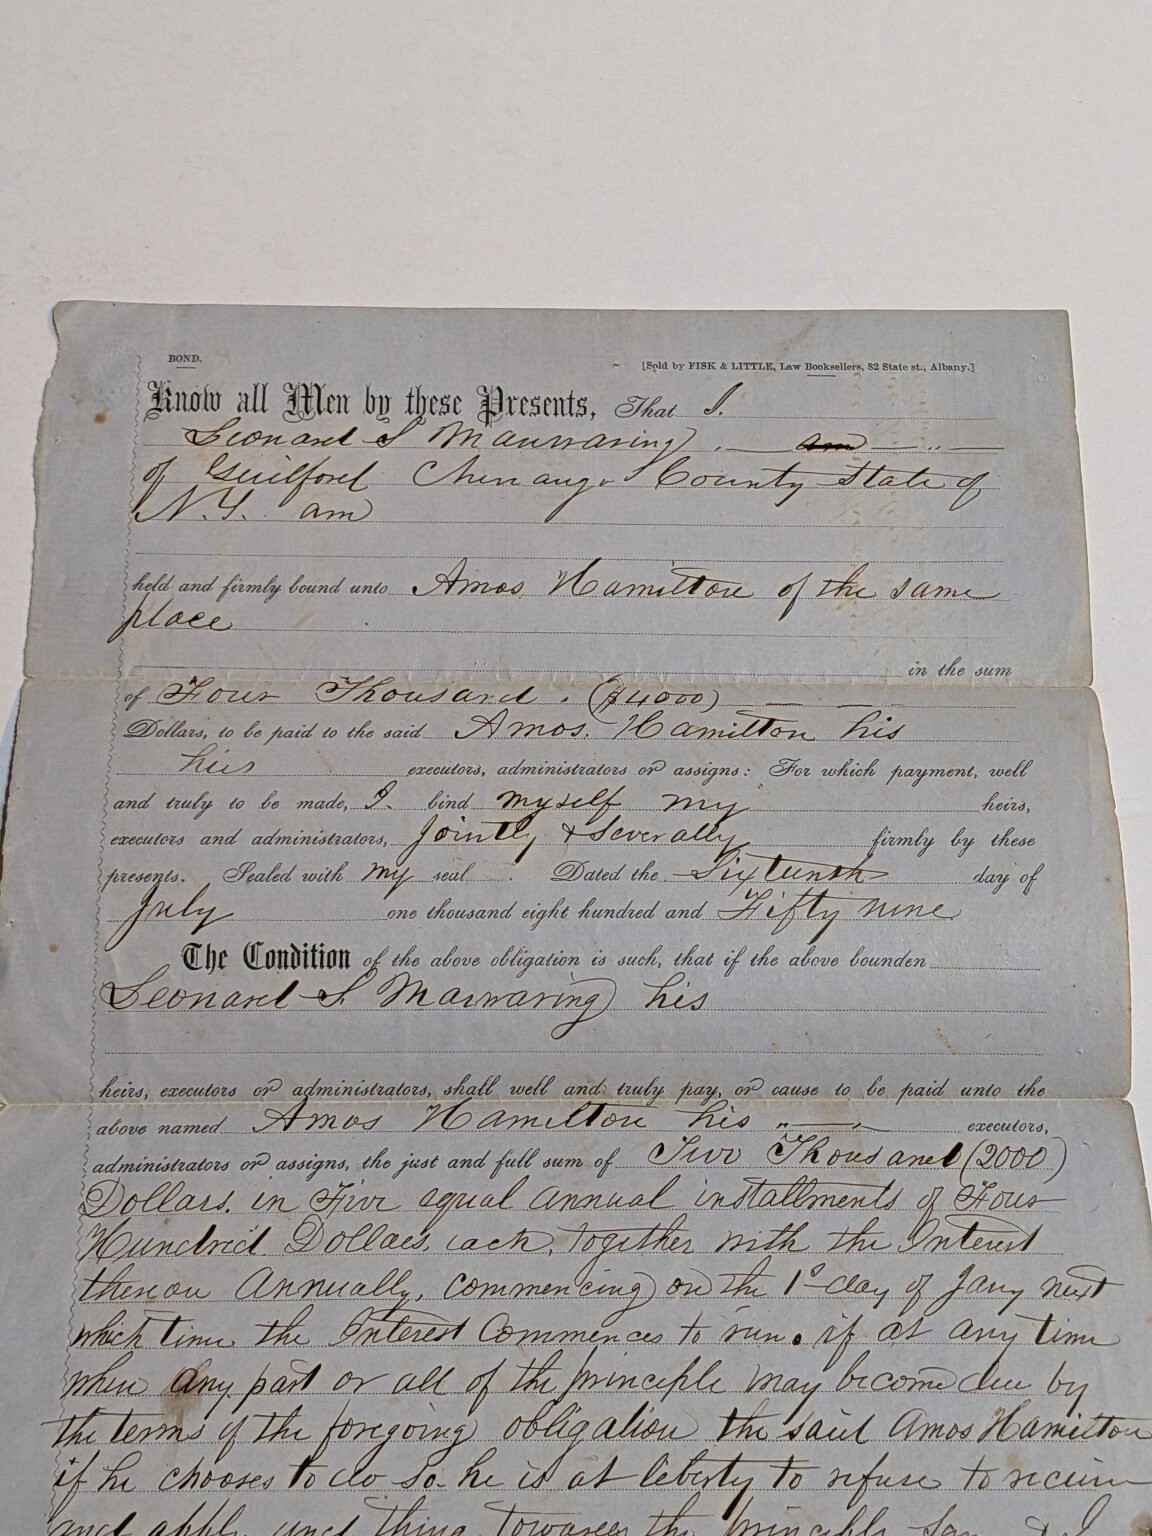 BOND.
[Sold by FISK & LITTLE, Law Booksellers, 82 State st., Albany.]
Know all Men by these Presents, That I.
Leonard S Manwaring am
of Guilford Chenango County State of
N.Y. am
held and firmly bound unto Amos Hamilton of the same
place
in the sum
of Four Thousand. ($4000)
Dollars, to be paid to the said Amos. Hamilton his
heirs executors, administrators or assigns: For which payment, well
and truly to be made, I. bind myself my heirs,
executors and administrators, Jointly & Severally firmly by these
presents. Sealed with my seal. Dated the Sixteenth day of
July one thousand eight hundred and Fifty nine
The Condition of the above obligation is such, that if the above bounden
Leonard S. Manwaring his
heirs, executors or administrators, shall well and truly pay, or cause to be paid unto the
above named Amos Hamilton his " executors,
administrators or assigns, the just and full sum of Two Thousand (2000)
Dollars. in Five equal annual installments of Four
Hundred Dollars, each, together with the Interest
thereon Annually, commencing on the 1st day of Jany next
which time the Interest Commences to run. if at any time
when any part or all of the principle may become due by
the terms of the foregoing obligation the said Amos Hamilton
if he chooses to do so. he is at liberty to refuse to receive
and apply thing towards the principle